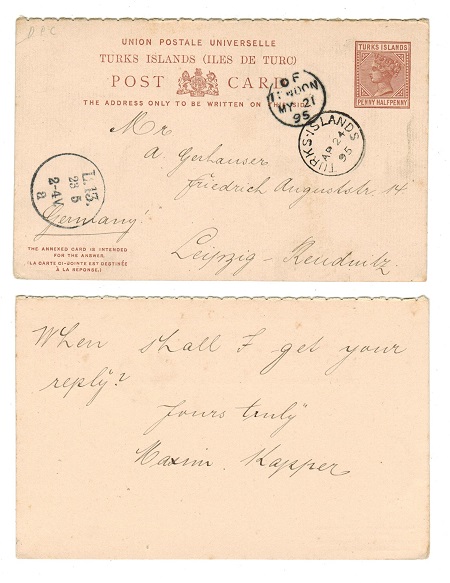 D P C
UNION POSTALE UNIVERSELLE
TURKS ISLANDS (ILES DE TURC)
POST CARD
THE ADDRESS ONLY TO BE WRITTEN ON THIS SIDE
TURKS ISLANDS
PENNY HALFPENNY
MY 21
95
TURKS-ISLANDS
AP 24
95
L. 13.
23 5
2-4V
a
Mr
A. Gerhauser
Friedrich Auguststr. 14
Germany!
Leipzig-Reudnitz.
THE ANNEXED CARD IS INTENDED
FOR THE ANSWER.
(LA CARTE CI-JOINTE EST DESTINÉE
À LA RÉPONSE.)
When shall I get your
reply?
Yours truly
Maxim. Kapper